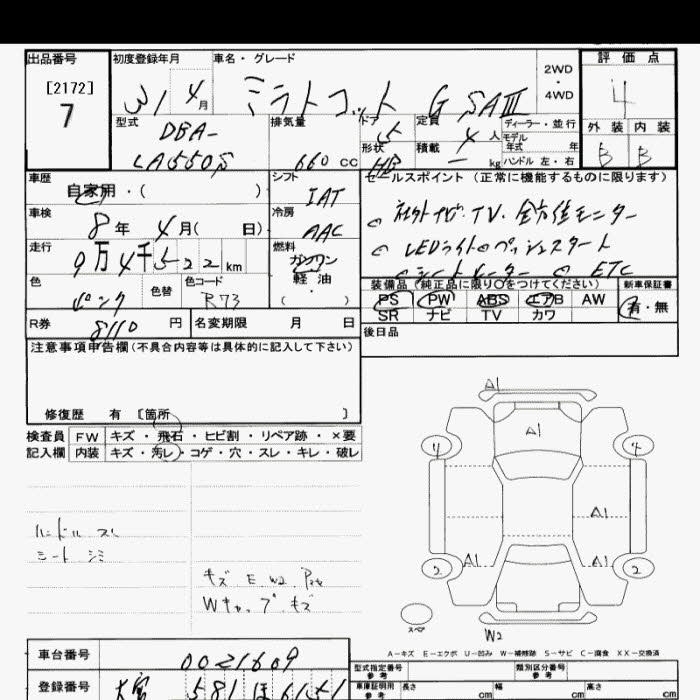 出品番号
[2172]
7
初度登録年月
31 4月
車名・グレード
ミラトコット G SAIII
2WD
・
4WD
評価点
4
外装 内装
B B
型式
DBA-
LA550S
排気量
660 cc
ドア
5
形状
HB
定員
4 人
積載
— kg
ディーラー・並行
モデル
年式 年
ハンドル 左・右
車歴
自家用・( )
車検
8年 4月( 日)
走行
9万4千522km
色
ピンク
色替
色コード
R73
シフト
IAT
冷房
AAC
燃料
ガソリン
軽油
( )
セールスポイント (正常に機能するものに限ります)
○ 社外ナビ・TV・全方位モニター
○ LEDライト○プッシュスタート
○シートヒーター ○ ETC
装備品(純正品に限り○をつけてください)
PS PW ABS エアB AW
SR ナビ TV カワ
新車保証書
有・無
R券
8110 円
名変期限 月 日
後日品
注意事項申告欄(不具合内容等は具体的に記入して下さい)
修復歴 有 [箇所 ]
検査員
記入欄
FW キズ・飛石・ヒビ割・リペア跡・×要
内装 キズ・汚レ・コゲ・穴・スレ・キレ・破レ
ハンドル スレ
シート シミ
キズ E W2
Wキャップ キズ
A1
A1
4 4
A1
A1 A1
2 2
スペア
W2
A-キズ E-エクボ U-凹み W-補修跡 S-サビ C-腐食 XX-交換済
車台番号
0021609
登録番号
大宮 581 ほ 6151
型式指定番号
参考
類別区分番号
参考
車庫証明用
参考
長さ cm
幅 cm
高さ cm